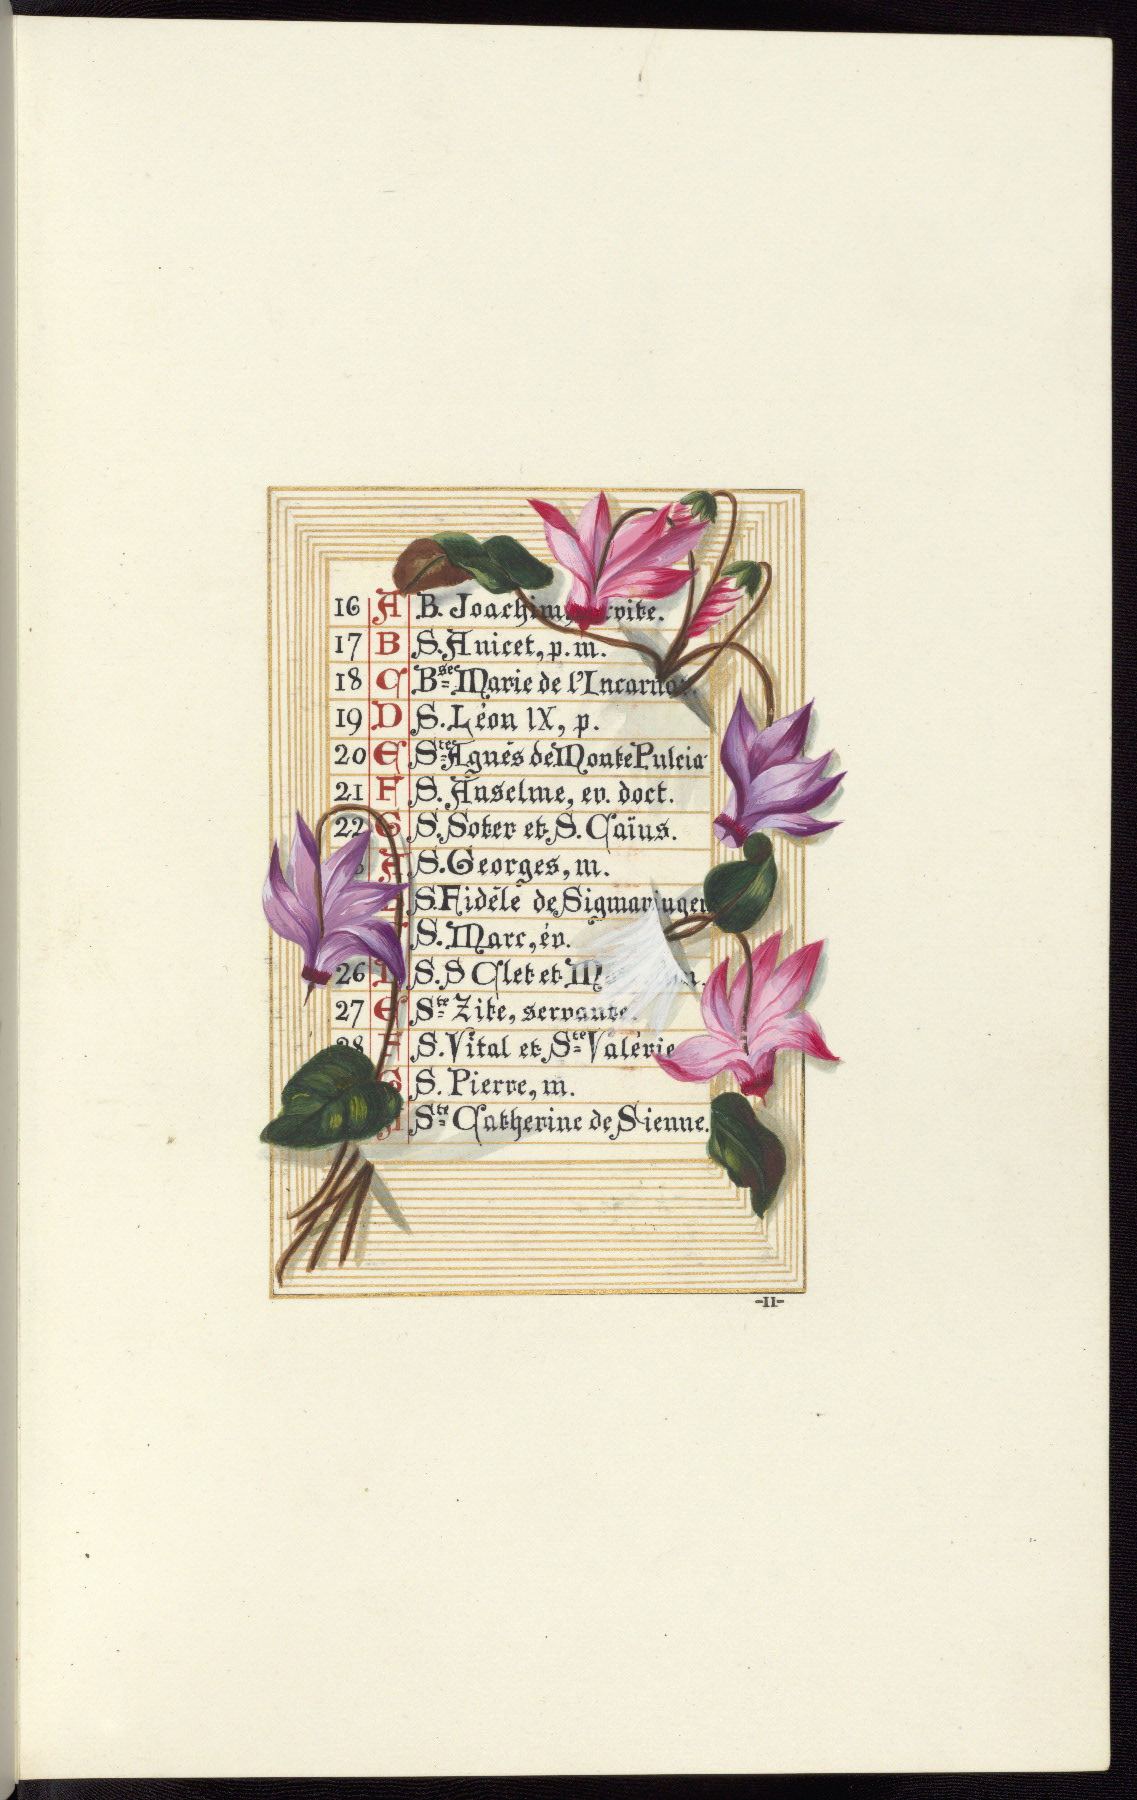 16 A B. Joachim, rvite.
17 B S. Anicet, p. m.
18 C Bse Marie de l'Incarna
19 D S. Léon IX, p.
20 E Ste Agnès de Monte Pulcia
21 F S. Anselme, ev. doct.
22 G S. Soter et S. Caïus.
A S. Georges, m.
S. Fidèle de Sigmaringen
S. Marc, év.
26 D S.S Clet et
27 E Ste Zite, servante.
28 F S. Vital et Ste Valérie
G S. Pierre, m.
A Ste Catherine de Sienne.
-11-